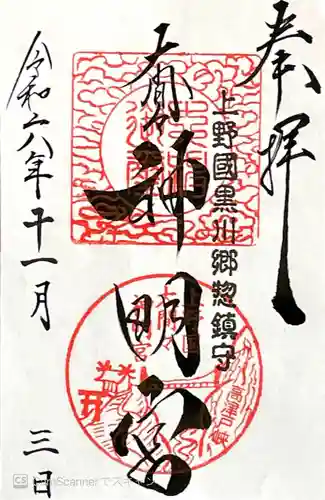 奉拝
上野國黒川郷惣鎮守
大間々
神明宮
高津戸峡
令和六年十一月
三日
CS CamScannerでスキャン